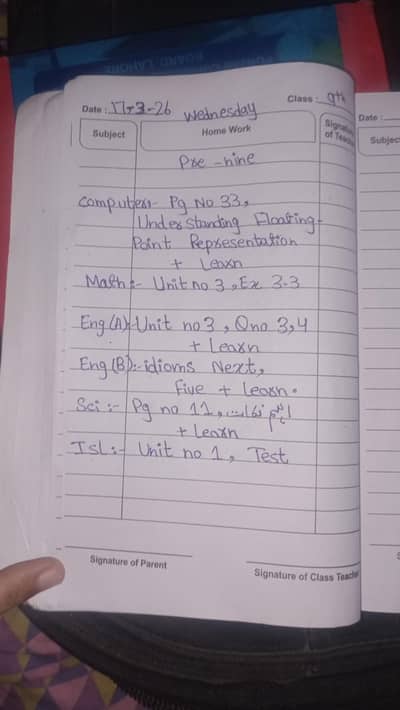 Date : 11-3-26 Wednesday Class : 9th
Subject Home Work Signature of Teacher
Pre-nine
Computer:- Pg No 33,
Understanding Floating-
Point Representation
+ Learn
Math:- Unit no 3, Ex 3.3
Eng(A):- Unit no 3, Qno 3,4
+ Learn
Eng(B):- idioms Next,
Five + learn.
Sci :- Pg no 11, اہم نکات
+ Learn
Isl:- Unit no 1, Test
Signature of Parent Signature of Class Teacher
Date :
Subjec